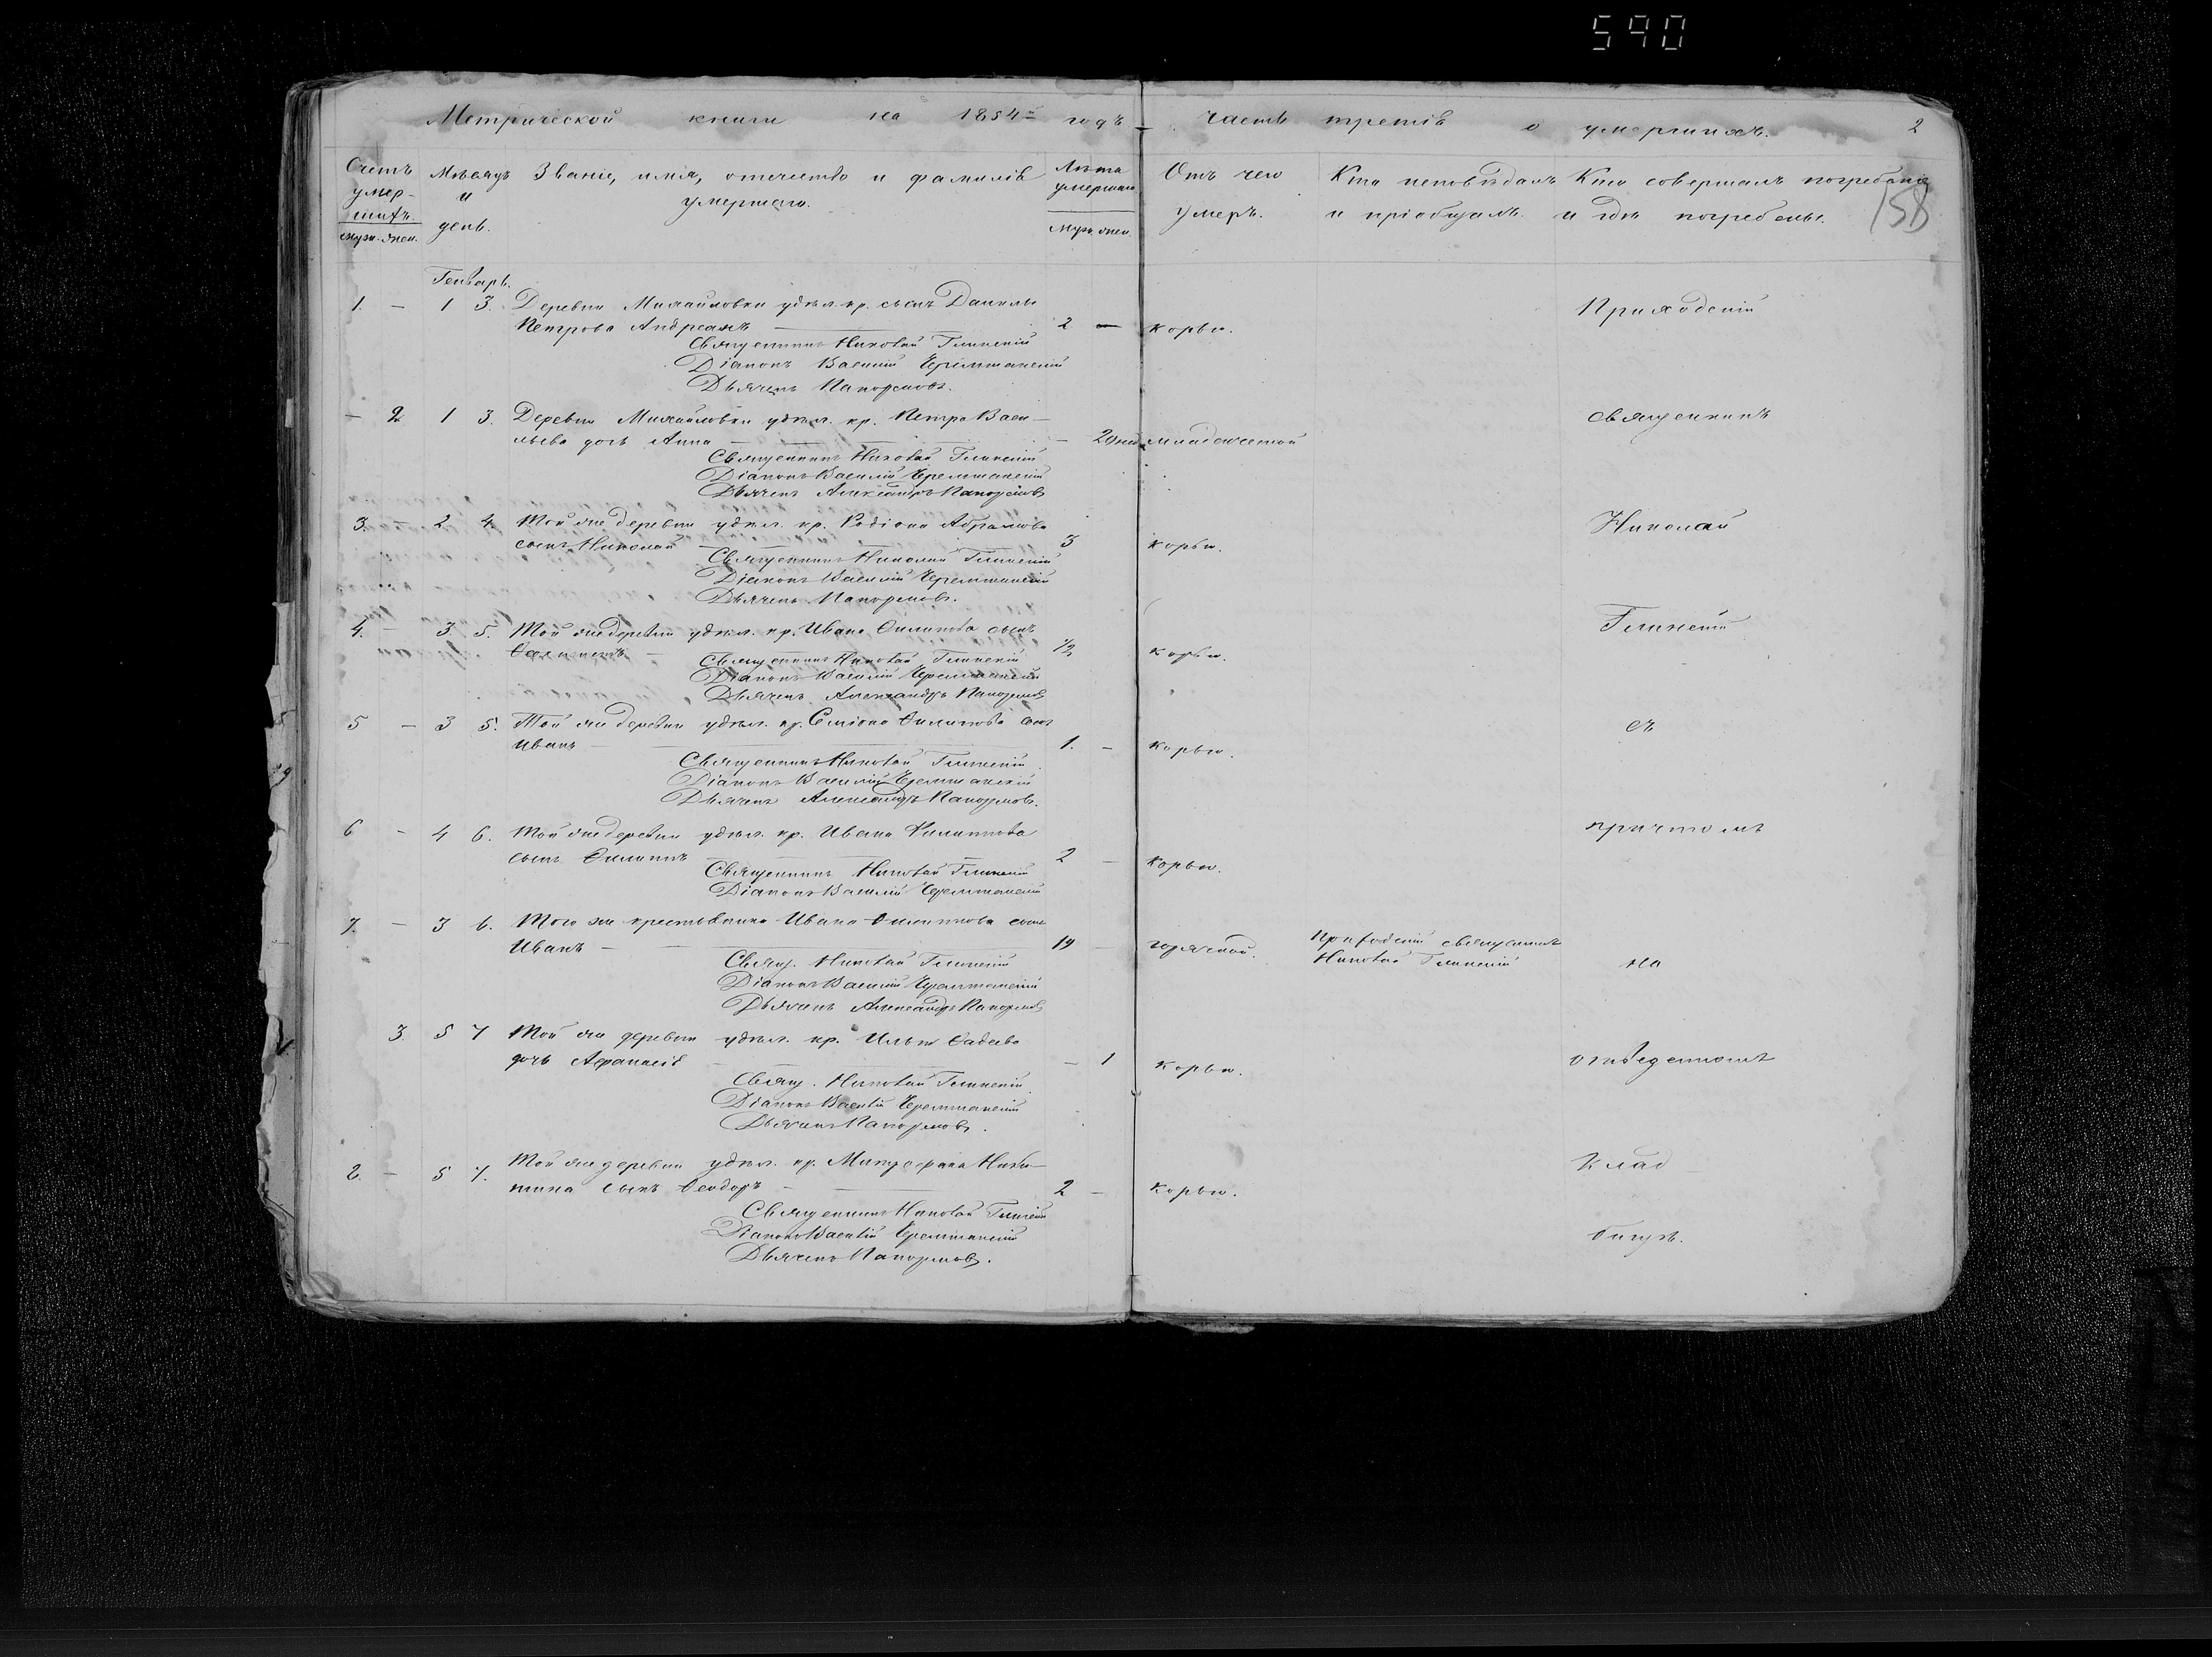 590
Метрической книги на 1854й годъ часть третія о умершихъ. 2
158
Счетъ умер-шихъ. муж. жен.
Мѣсяцъ и день.
Званіе, имя, отчество и фамилія умершаго.
Лѣта умершаго муж. жен.
Отъ чего умеръ.
Кто исповѣдалъ и пріобщалъ.
Кто совершалъ погребеніе и гдѣ погребены.
Генварь.
1. — 1 3. Деревни Михайловки удѣл. кр. сынъ Данилы
Петрова Андреянъ — 2 — корью.
Священникъ Николай Глинскій
Діаконъ Василій Черемшанскій
Дьячекъ
— 2 1 3. Деревни Михайловки удѣл. кр. Петра Васи-
льева дочь Анна — — 2 дней младенческой
Священникъ Николай Глинскій
Діаконъ Василій Черемшанскій
Дьячекъ Александръ
3. 2 4. Той же деревни удѣл. кр. Родіона Абрамова
сынъ Николай 3 корью.
Священникъ Николай Глинскій
Діаконъ Василій Черемшанскій
Дьячекъ
4. — 3. 5. Той же деревни удѣл. кр. Ивана Филипова сынъ
— 1/2 корью.
Священникъ Николай Глинскій
Діаконъ Василій Черемшанскій
Дьячекъ Александръ
5 — 3 5. Той же деревни удѣл. кр. Семіона Филипова сынъ
Иванъ — 1. — корью.
Священникъ Николай Глинскій
Діаконъ Василій Черемшанскій
Дьячекъ Александръ
6 — 4 6. Той же деревни удѣл. кр. Ивана Филиппова
сынъ Филиппъ — 2 — корью.
Священникъ Николай Глинскій
Діаконъ Василій Черемшанскій
7. — 3 6. Того же крестьянина Ивана Филиппова сынъ
Иванъ — 19 — горячкой. Приходскій священникъ
Николай Глинскій
Свящ. Николай Глинскій
Діаконъ Василій Черемшанскій
Дьячекъ Александръ
3. 5 7 Той же деревни удѣл. кр. Ильи Фадеева
дочь Афанасія — — 1 корью.
Свящ. Николай Глинскій
Діаконъ Василій Черемшанскій
Дьячекъ
8. — 5 7. Той же деревни удѣл. кр. Митрофана Ники-
тина сынъ Феодоръ — 2 — корью.
Священникъ Николай Глинскій
Діаконъ Василій Черемшанскій
Дьячекъ
Приходскій
священникъ
Николай
Глинскій
съ
причтомъ
на
отведенномъ
клад-
бищѣ.